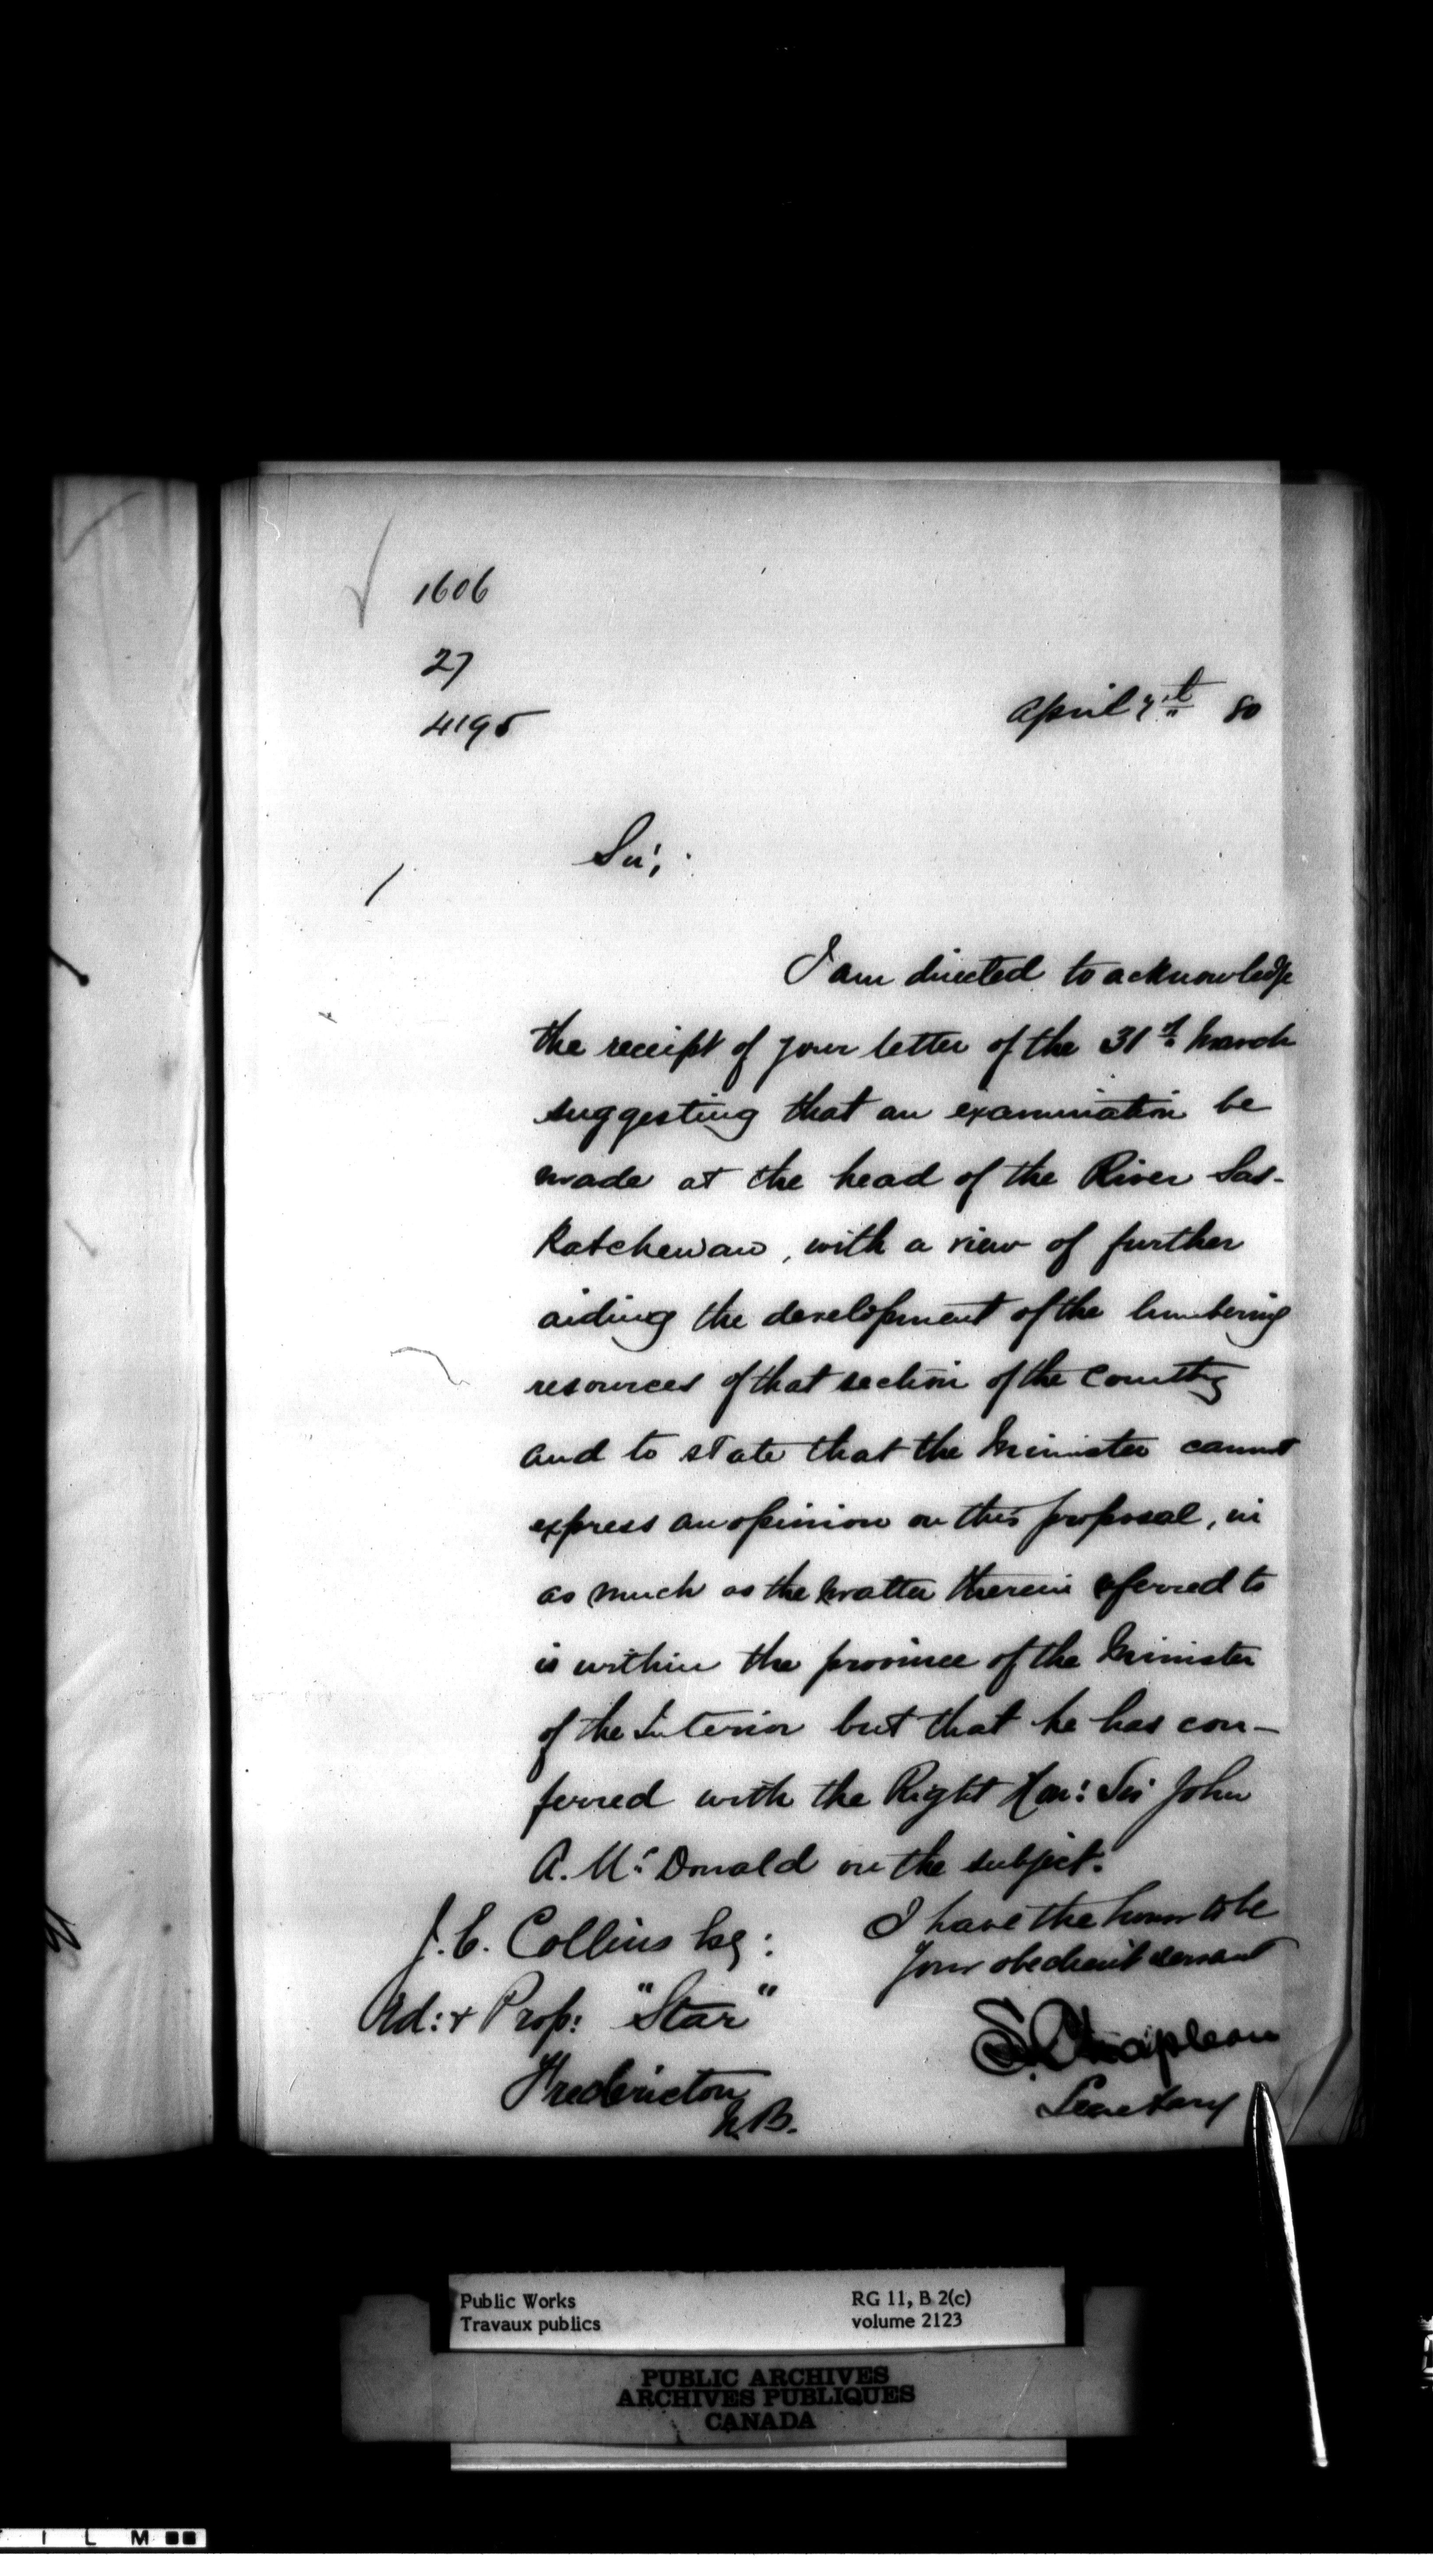 1606
27
4195
April 7th 80
Sir,
I am directed to acknowledge
the receipt of your letter of the 31st March
suggesting that an examination be
made at the head of the River Sas-
katchewan, with a view of further
aiding the development of the lumbering
resources of that section of the Country
and to state that the Minister cannot
express an opinion on this proposal, in
as much as the matter therein referred to
is within the province of the Minister
of the Interior but that he has con-
ferred with the Right Hon: Sir John
A. McDonald on the subject.
I have the honor to be
Your obedient servant
S. Chapleau
Secretary
J. C. Collins Esq:
Ed: & Prop: "Star"
Fredericton
N.B.
Public Works
Travaux publics
RG 11, B 2(c)
volume 2123
PUBLIC ARCHIVES
ARCHIVES PUBLIQUES
CANADA
I L M